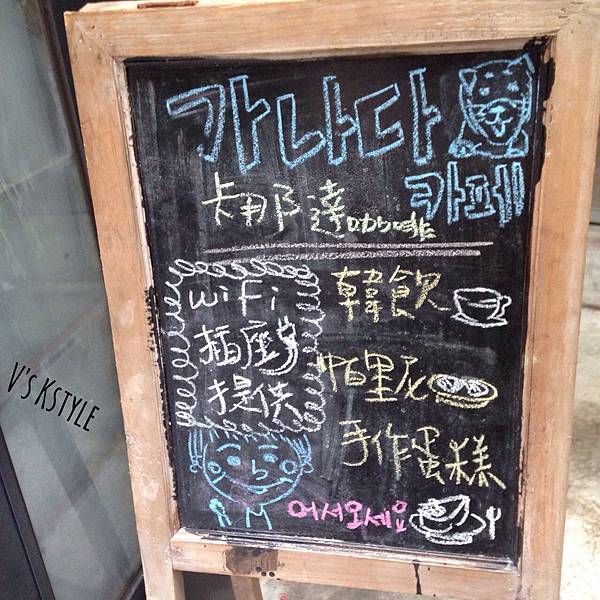 가나다
카페
卡那達咖啡
WiFi
插座
提供
韓飲
帕里尼
手作蛋糕
어서오세요
V's KSTYLE